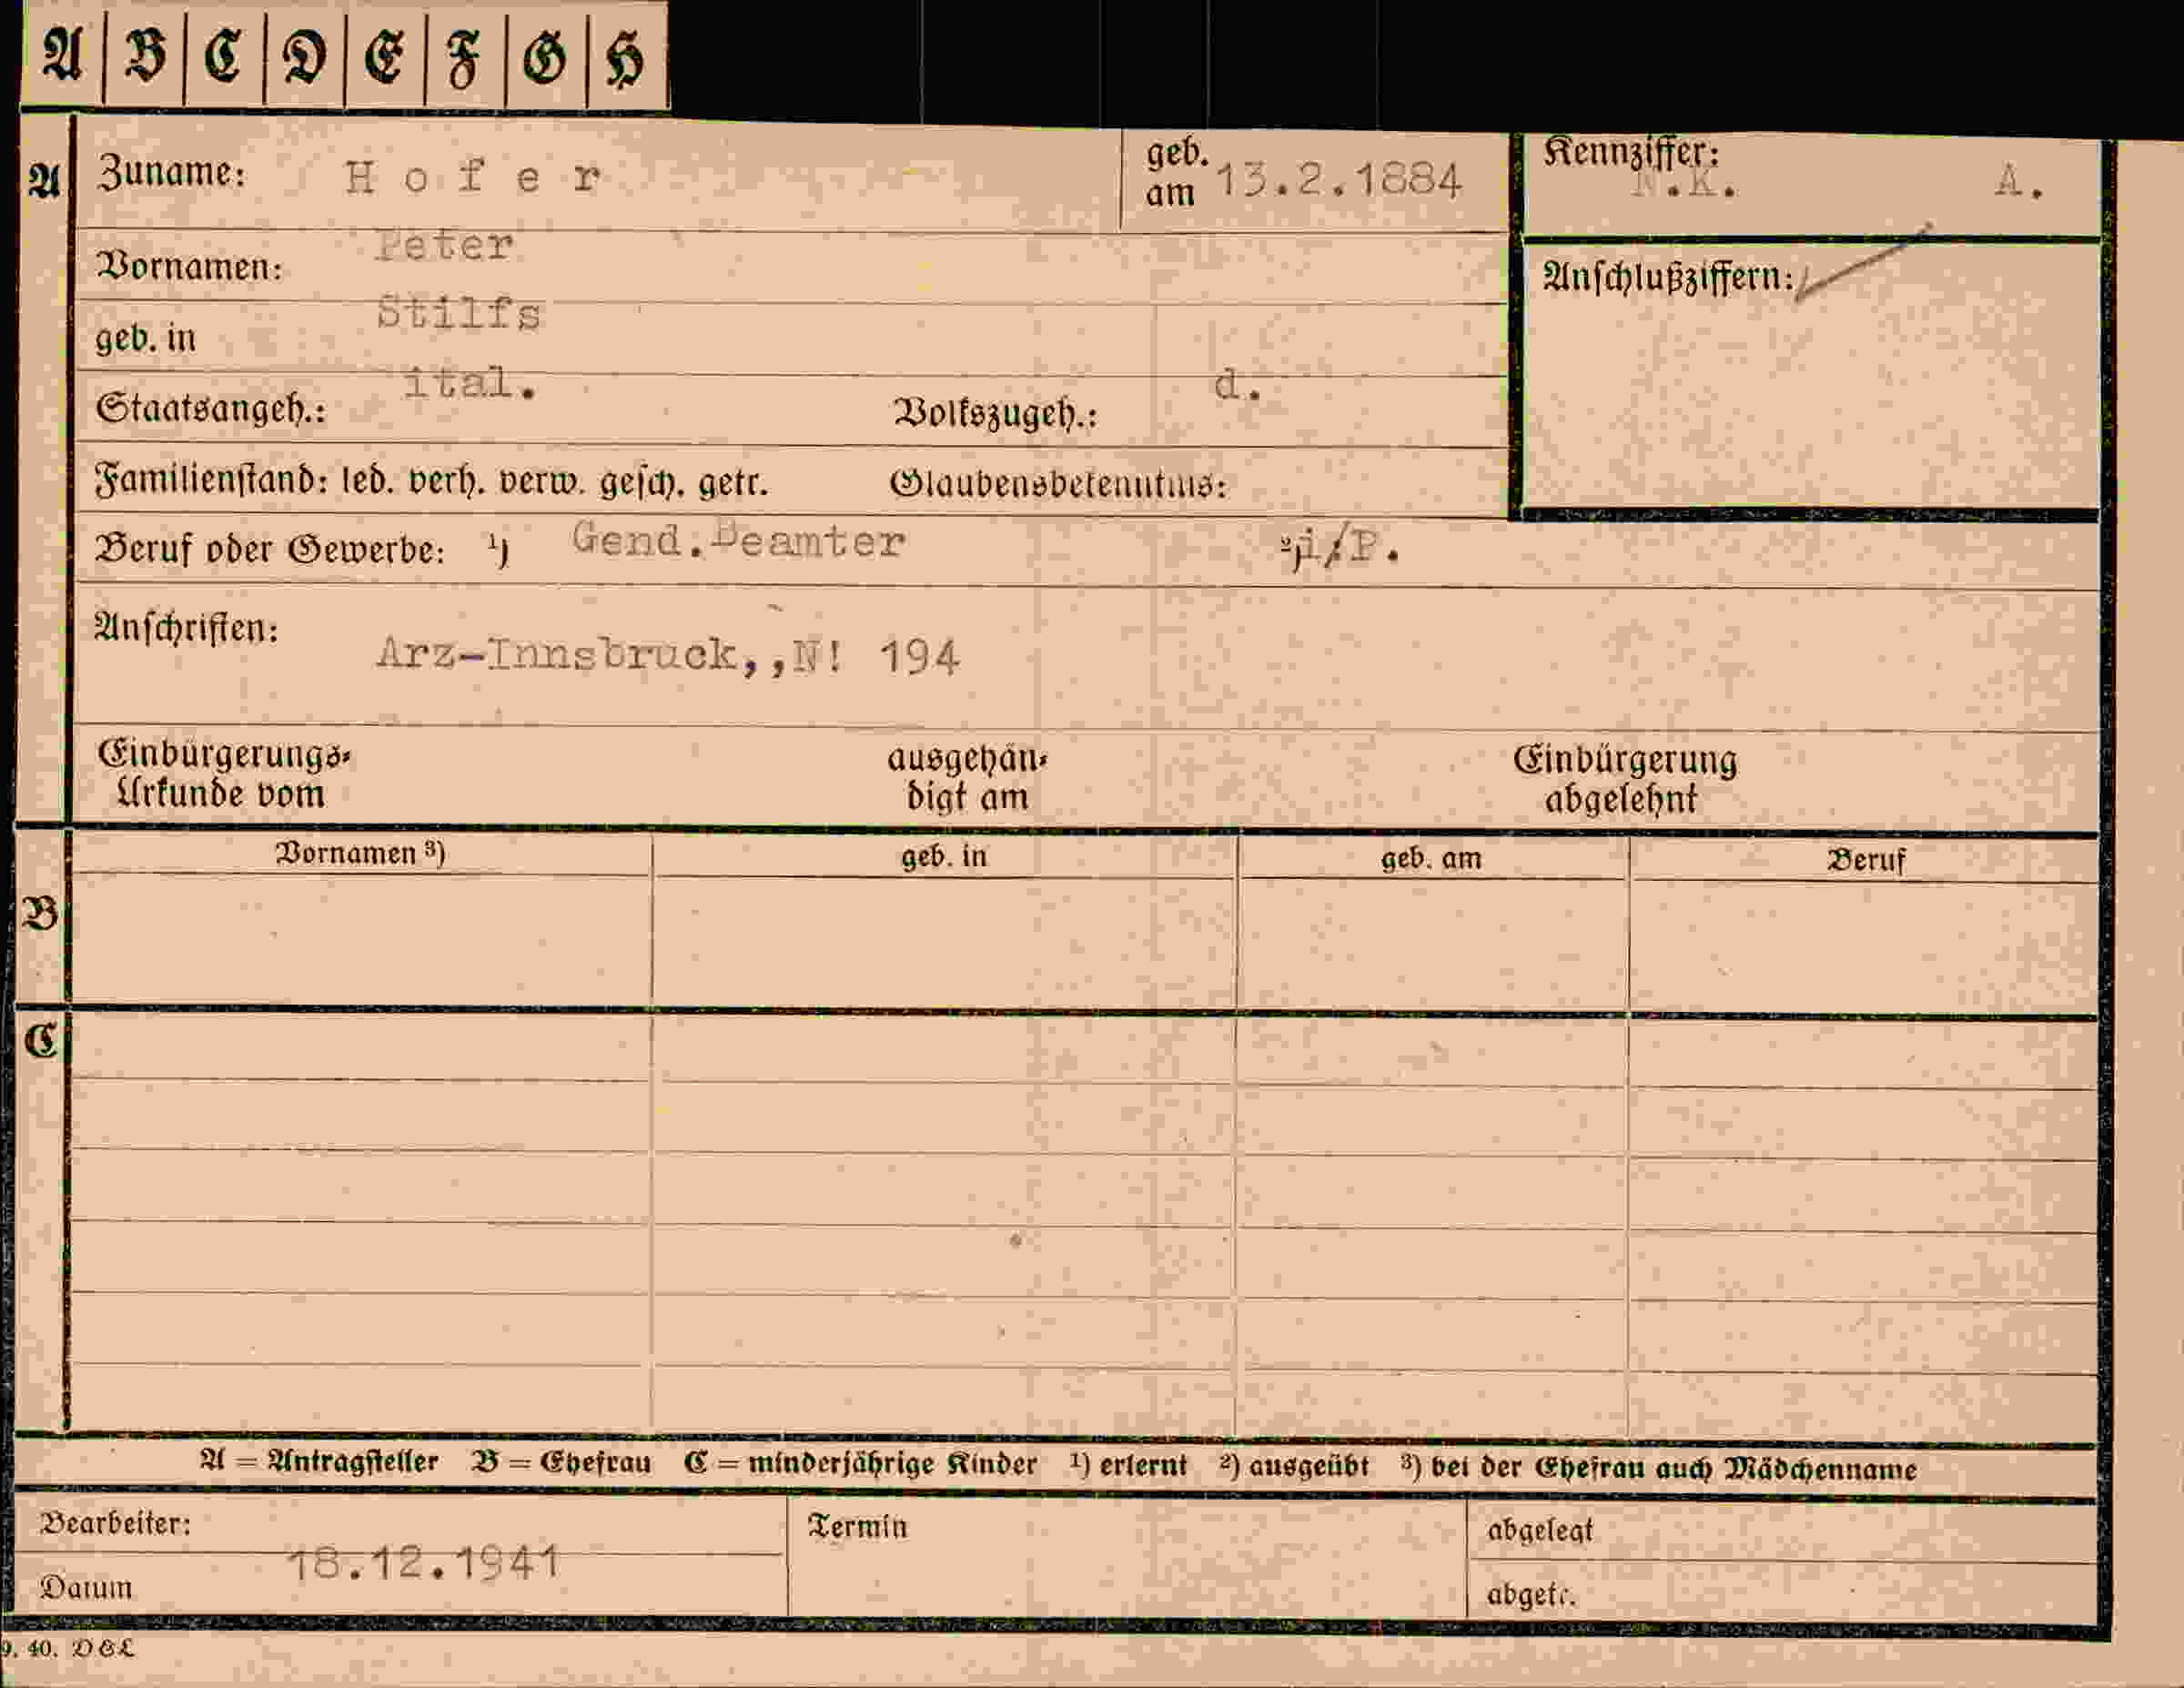 A B C D E F G H
A Zuname: Hofer geb. am 13.2.1884 Kennziffer: N.K. A.
Vornamen: Peter Anschlußziffern:
geb. in Stilfs
Staatsangeh.: ital. Volkszugeh.: d.
Familienstand: led. verh. verw. gesch. getr. Glaubensbekenntnis:
Beruf oder Gewerbe: ¹) Gend.Beamter ²) i/P.
Anschriften: Arz-Innsbruck,,N! 194
Einbürgerungs- ausgehän- Einbürgerung
Urkunde vom digt am abgelehnt
Vornamen ³) geb. in geb. am Beruf
B
C
A = Antragsteller B = Ehefrau C = minderjährige Kinder ¹) erlernt ²) ausgeübt ³) bei der Ehefrau auch Mädchenname
Bearbeiter: Termin abgelegt
Datum 18.12.1941 abgetr.
9. 40. D&L